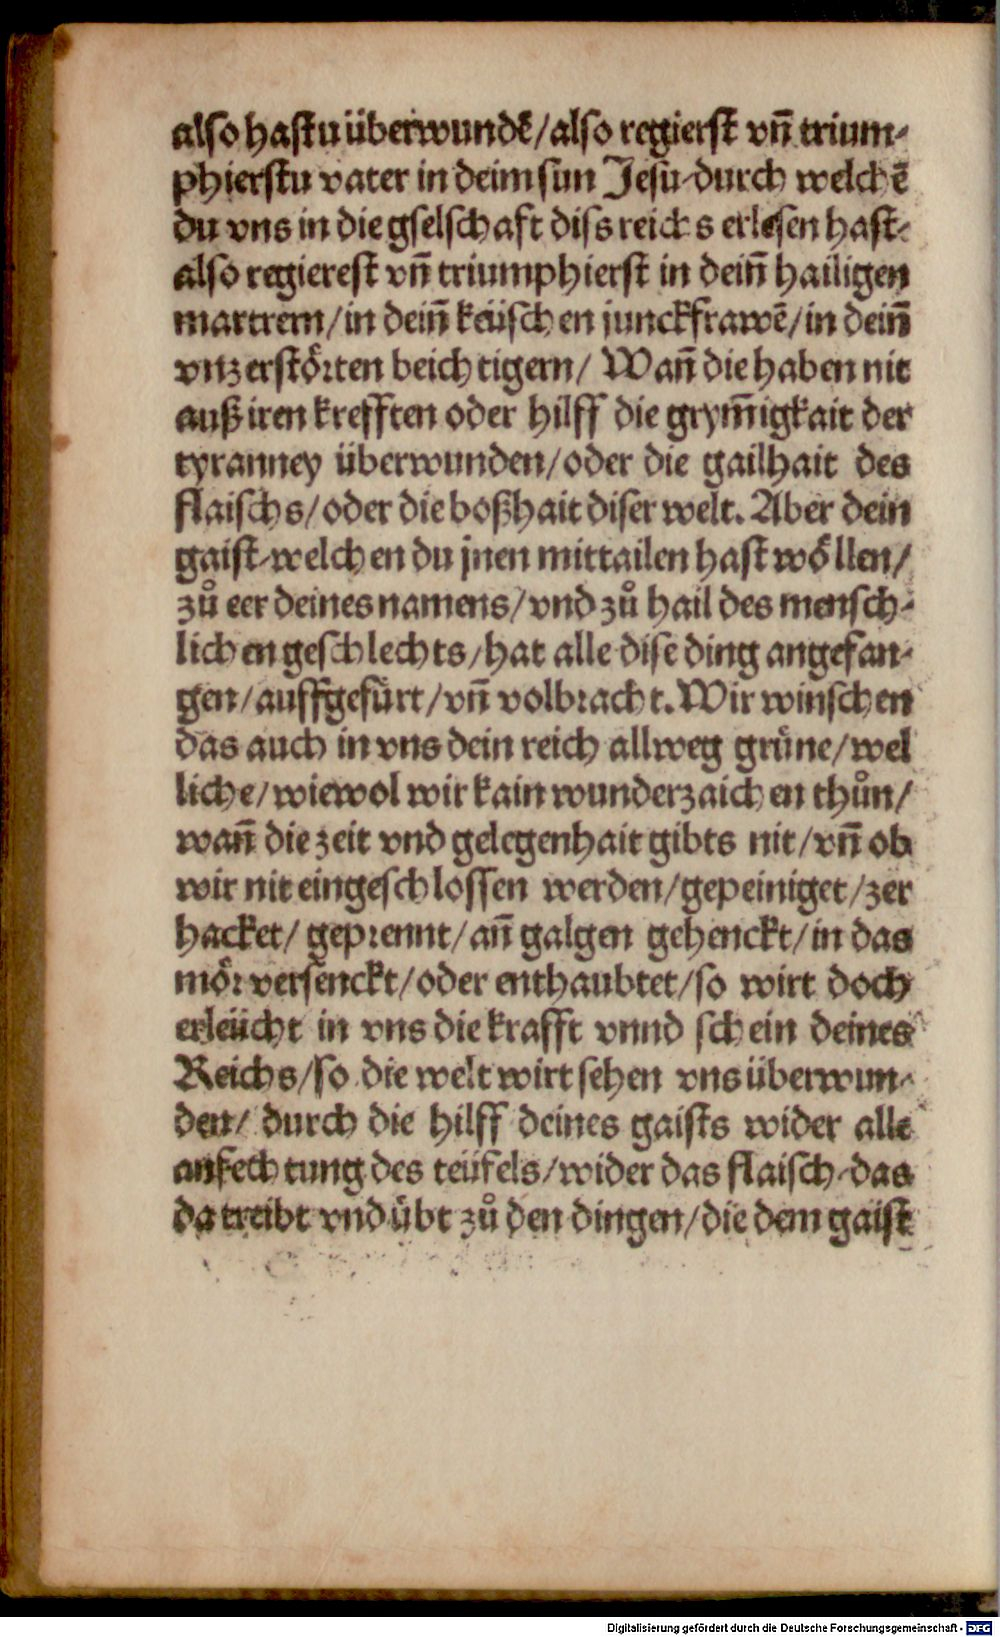 also hastu überwundē/also regierst vn̄ trium-
phierstu vater in deim sun Jesu-durch welchē
du vns in die gselschaft diss reichs erlesen hast-
also regierest vn̄ triumphierst in dein̄ hailigen
martrern/in dein̄ keüschen junckfrawē/in dein̄
vnzerstörten beichtigern/ Wan̄ die haben nit
auß iren krefften oder hilff die grym̄igkait der
tyranney überwunden/oder die gailhait des
flaischs/oder die boßhait diser welt. Aber dein
gaist-welchen du jnen mittailen hast wöllen/
zů eer deines namens/vnd zů hail des mensch-
lichen geschlechts/hat alle dise ding angefan-
gen/auffgefürt/vn̄ volbracht. Wir winschen
das auch in vns dein reich allweg grüne/wel
liche/wiewol wir kain wunderzaichen thůn/
wan̄ die zeit vnd gelegenhait gibts nit/vn̄ ob
wir nit eingeschlossen werden/gepeiniget/zer
hacket/ geprennt/an̄ galgen gehenckt/in das
mör versenckt/oder enthaubtet/so wirt doch
erleücht in vns die krafft vnnd schein deines
Reichs/so die welt wirt sehen vns überwun-
den/ durch die hilff deines gaists wider alle
anfechtung des teüfels/wider das flaisch-das
da treibt vnd übt zů den dingen/die dem gaist
Digitalisierung gefördert durch die Deutsche Forschungsgemeinschaft - DFG